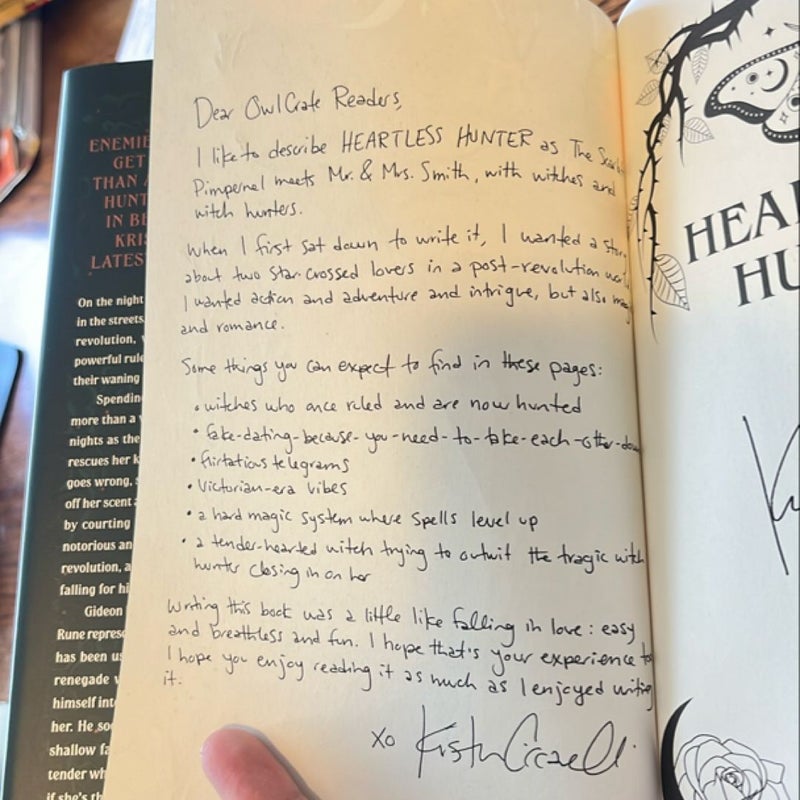 ENEMIE
GET
THAN A
HUNT
IN BE
KRIS
LATES
On the night
in the streets,
revolution,
powerful rule
their waning
Spending
more than a
nights as the
rescues her k
goes wrong, s
off her scent a
by courting
notorious an
revolution, a
falling for hi
Gideon
Rune represe
has been us
renegade v
himself int
her. He soo
shallow fa
tender wh
if she's th
Dear OwlCrate Readers,
I like to describe HEARTLESS HUNTER as The Scarle
Pimpernel meets Mr. & Mrs. Smith, with witches and
witch hunters.
When I first sat down to write it, I wanted a stor
about two star-crossed lovers in a post-revolution worl
I wanted action and adventure and intrigue, but also mag
and romance.
Some things you can expect to find in these pages:
• witches who once ruled and are now hunted
• fake-dating-because-you-need-to-take-each-other-dow
• flirtatious telegrams
• Victorian-era vibes
• a hard magic system where spells level up
• a tender-hearted witch trying to outwit the tragic witch
hunter closing in on her
Writing this book was a little like falling in love: easy
and breathless and fun. I hope that's your experience to
I hope you enjoy reading it as much as I enjoyed writing
it.
xo Kristen Ciccarelli
HEAR
HU